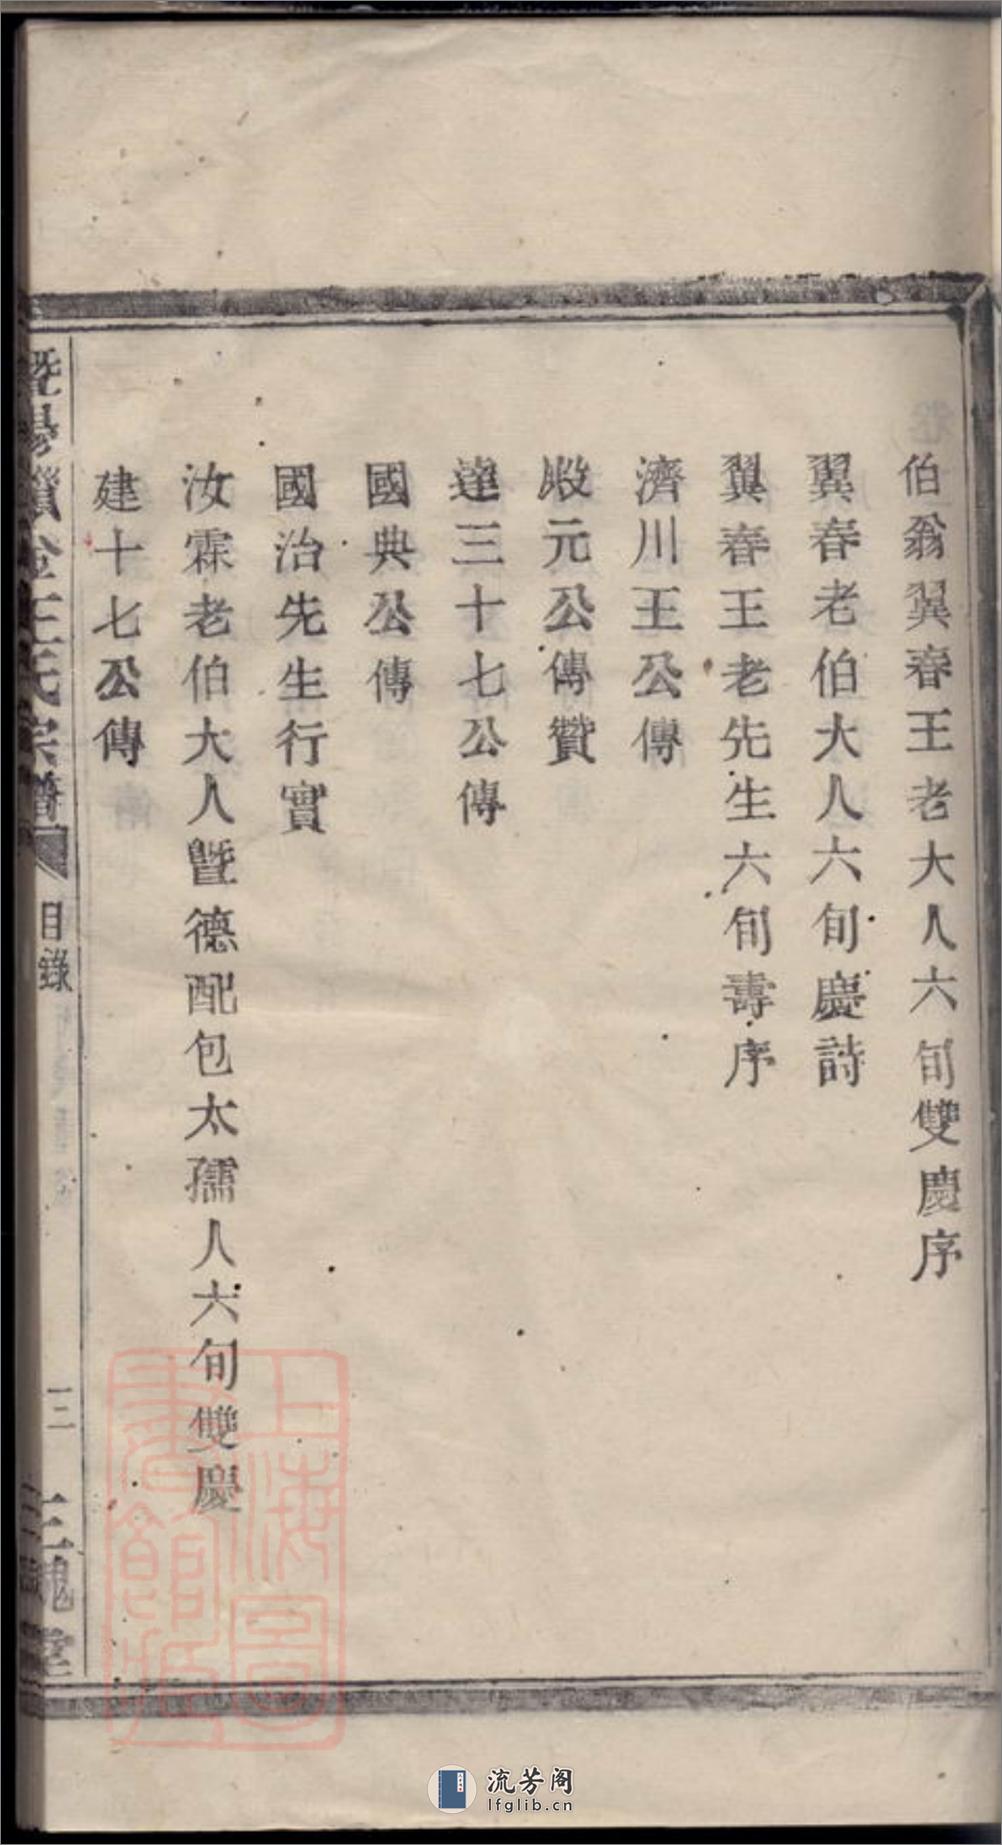 伯翁翼春王老大人六旬雙慶序
翼春老伯大人六旬慶詩
翼春王老先生六旬壽序
濟川王公傳
殿元公傳贊
達三十七公傳
國典公傳
國治先生行實
汝霖老伯大人暨德配包太孺人六旬雙慶
建十七公傳
暨陽 金王氏宗譜
目錄
三
三槐堂
上海圖書館藏
流芳阁
lfglib.cn